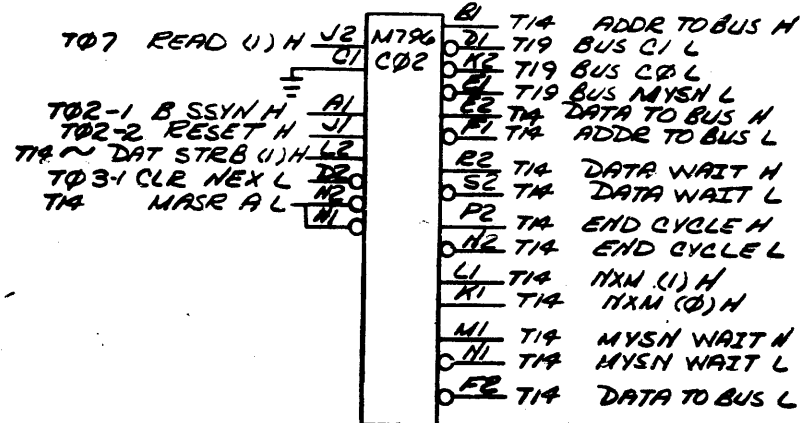 TØ7 READ (1) H J2
C1
TØ2-1 B SSYN H A1
TØ2-2 RESET H J1
T14 ~ DAT STRB (1) H L2
TØ3-1 CLR NEX L D2
T14 MASR A L H2
M796
CØ2
B1 T14 ADDR TO BUS H
D1 T19 BUS C1 L
K2 T19 BUS CØ L
E1 T19 BUS MYSN L
E2 T14 DATA TO BUS H
F1 T14 ADDR TO BUS L
R2 T14 DATA WAIT H
S2 T14 DATA WAIT L
P2 T14 END CYCLE H
N2 T14 END CYCLE L
L1 T14 NXM (1) H
K1 T14 NXM (Ø) H
M1 T14 MYSN WAIT H
N1 T14 MYSN WAIT L
F2 T14 DATA TO BUS L